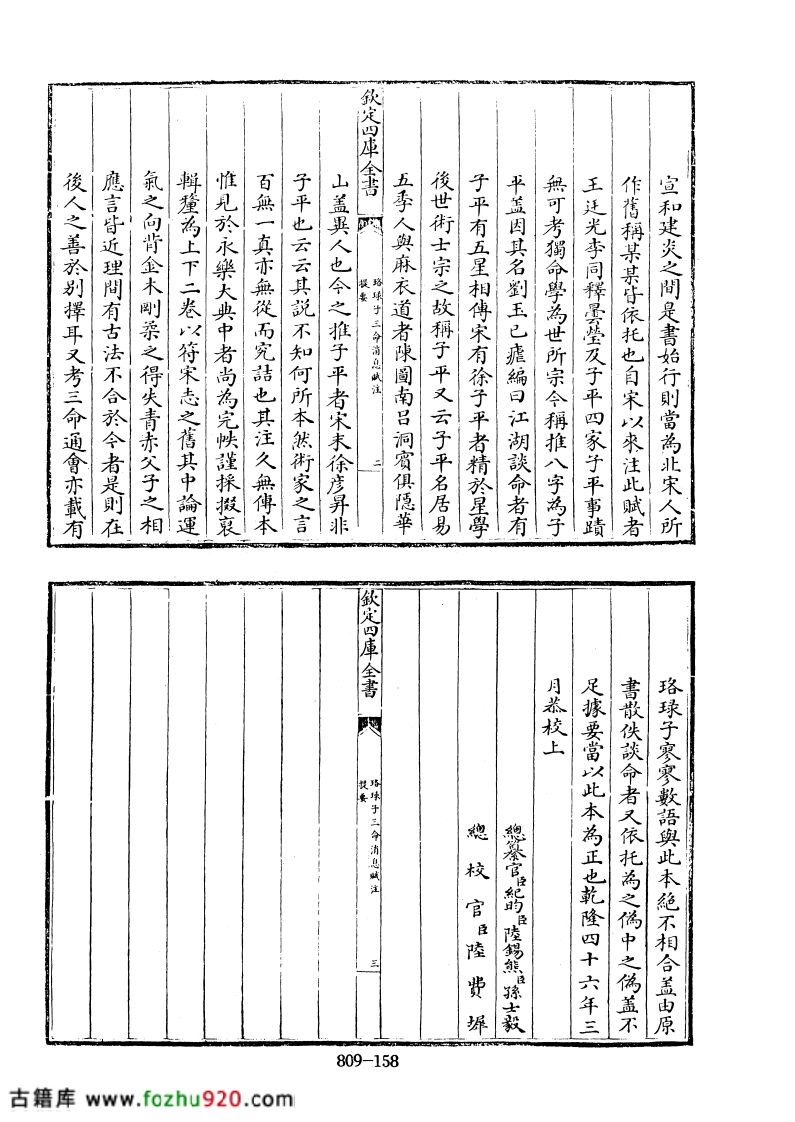 宣和建炎之間是書始行則當為北宋人所
作舊稱某某皆依托也自宋以來注此賦者
王廷光李同釋曇瑩及子平四家子平事蹟
無可考獨命學為世所宗今稱推八字為子
平盖因其名劉玉已瘧編曰江湖談命者有
子平有五星相傳宋有徐子平者精於星學
後世術士宗之故稱子平又云子平名居易
五季人與麻衣道者陳圖南吕洞賓俱隱華
欽定四庫全書
珞琭子三命消息賦注
提要
二
山盖異人也今之推子平者宋末徐彦昇非
子平也云云其説不知何所本然術家之言
百無一真亦無從而究詰也其注久無傳本
惟見於永樂大典中者尚為完帙謹採掇裒
輯釐為上下二卷以符宋志之舊其中論運
氣之向背金木剛柔之得失青赤父子之相
應言皆近理間有古法不合於今者是則在
後人之善於别擇耳又考三命通會亦載有
珞琭子寥寥數語與此本絶不相合盖由原
書散佚談命者又依托為之偽中之偽盖不
足據要當以此本為正也乾隆四十六年三
月恭校上
總纂官臣紀昀臣陸錫熊臣孫士毅
總校官臣陸費墀
欽定四庫全書
珞琭子三命消息賦注
提要
三
809-158
古籍库 www.fozhu920.com